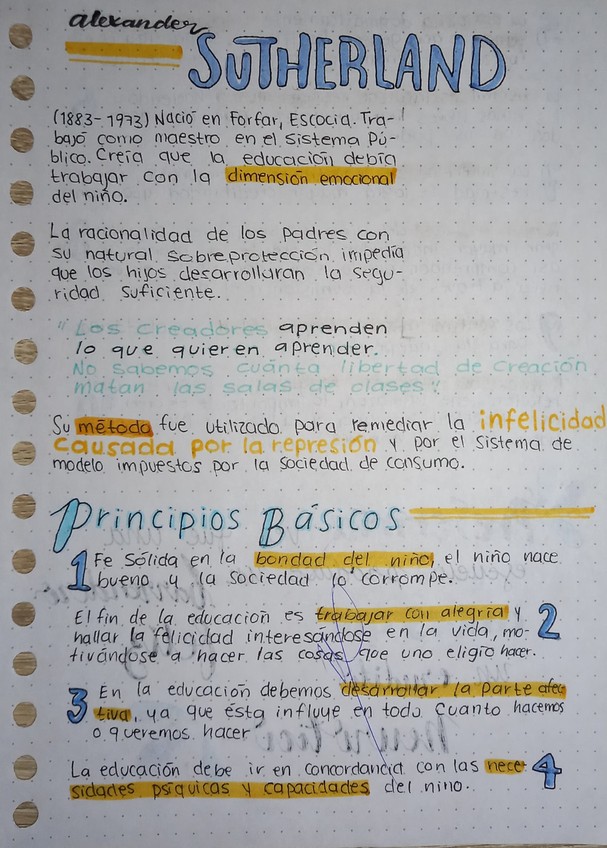 alexander
SUTHERLAND
(1883-1973) Nació en Forfar, Escocia. Tra-
bajó como maestro en el Sistema Pú-
blico. Creía que la educación debía
trabajar con la dimensión emocional
del niño.
La racionalidad de los padres con
su natural sobreprotección impedía
que los hijos desarrollaran la segu-
ridad suficiente.
"Los creadores aprenden
lo que quieren aprender.
No sabemos cuánta libertad de creación
matan las salas de clases"
Su método fue utilizado para remediar la infelicidad
causada por la represión y por el sistema de
modelo impuestos por la sociedad de consumo.
Principios Básicos
1 Fe Sólida en la bondad del niño, el niño nace
bueno y la sociedad lo corrompe.
El fin de la educación es trabajar con alegría y 2
hallar la felicidad interesándose en la vida, mo-
tivándose a hacer las cosas que uno eligió hacer.
3 En la educación debemos desarrollar la parte afec
tiva, ya que ésta influye en todo cuanto hacemos
o queremos hacer
La educación debe ir en concordancia con las nece- 4
sidades psíquicas y capacidades del niño.